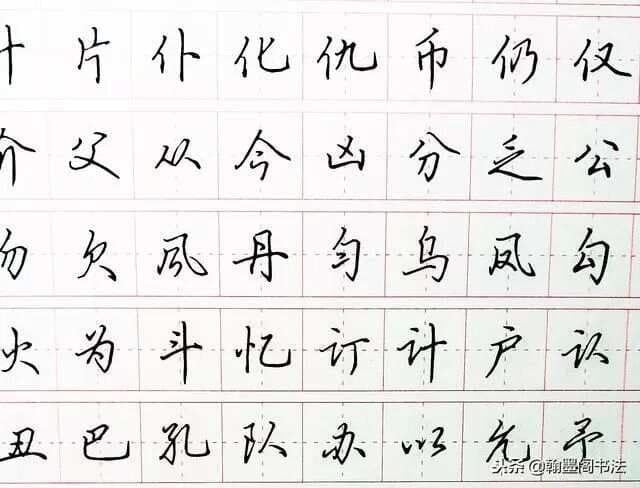 什片仆化仇币仍仅
介父从今凶分乏公
勿欠风丹匀乌凤勾
火为斗忆订计户认
丑巴孔队办以允予
头条 @翰墨阁书法